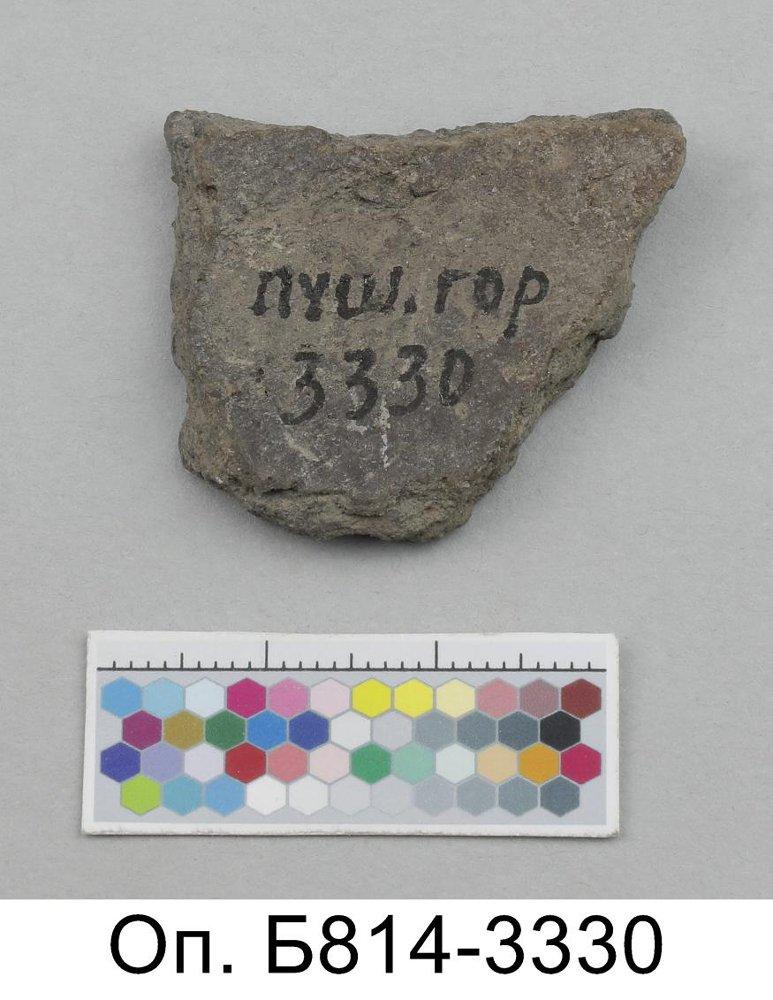 пуш. гор
3330
Оп. Б814-3330